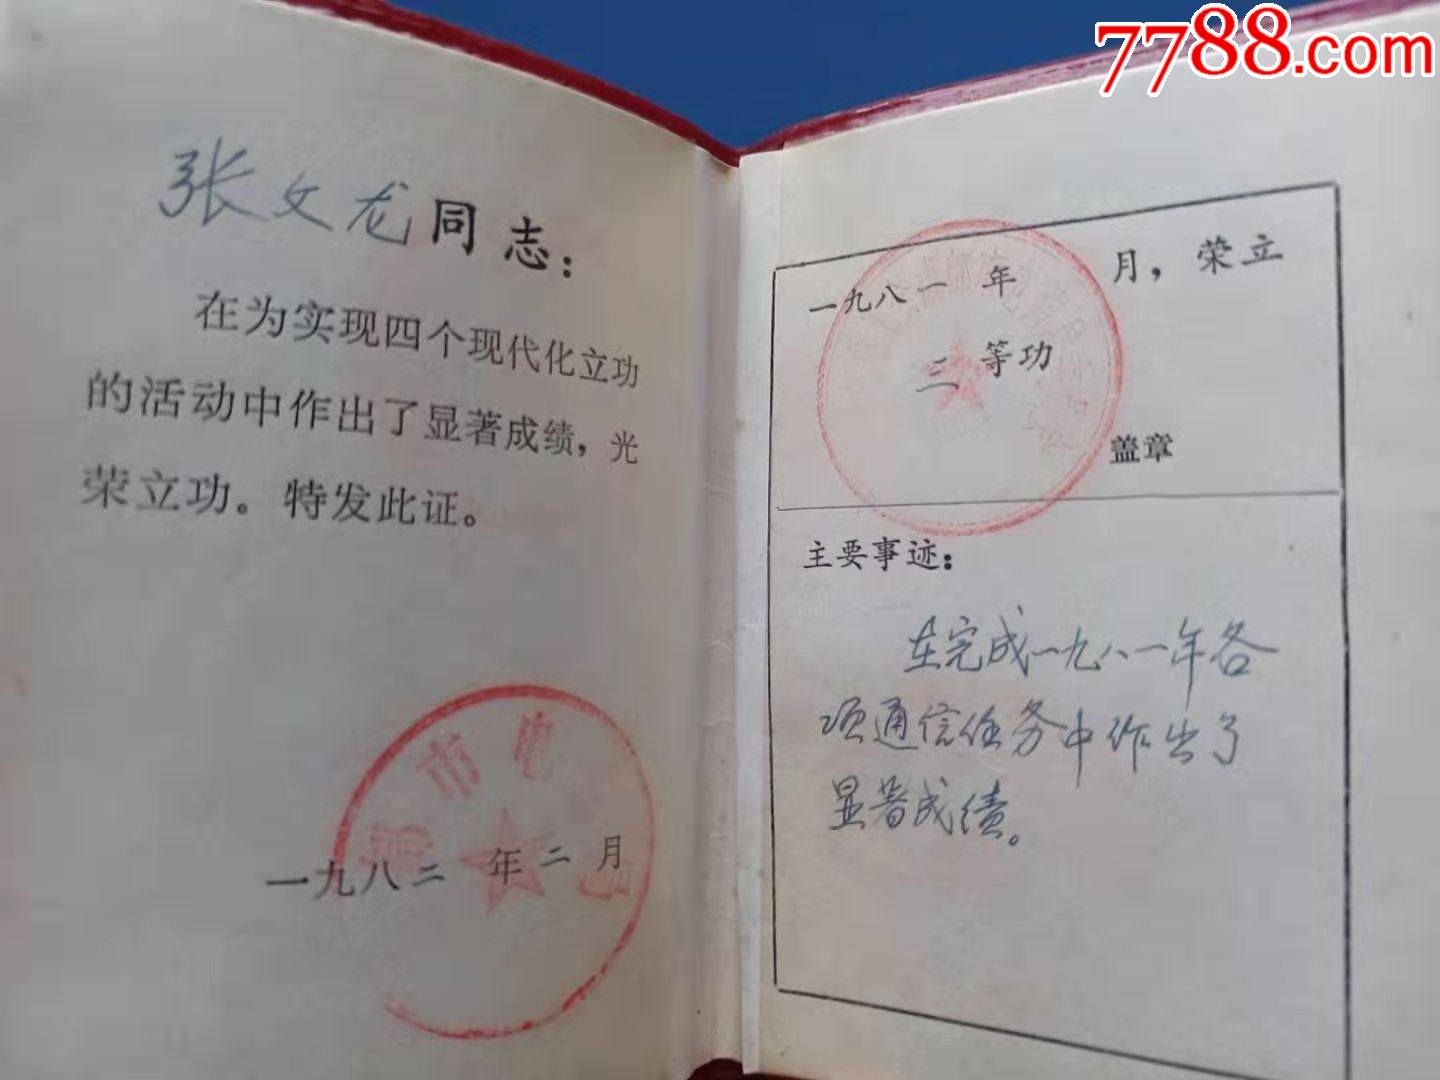 7788.com
张文龙同志：
在为实现四个现代化立功
的活动中作出了显著成绩，光
荣立功。特发此证。
市电
一九八二年二月
一九八一年 月，荣立
三等功
盖章
主要事迹：
在完成一九八一年各
项通信任务中作出了
显著成绩。